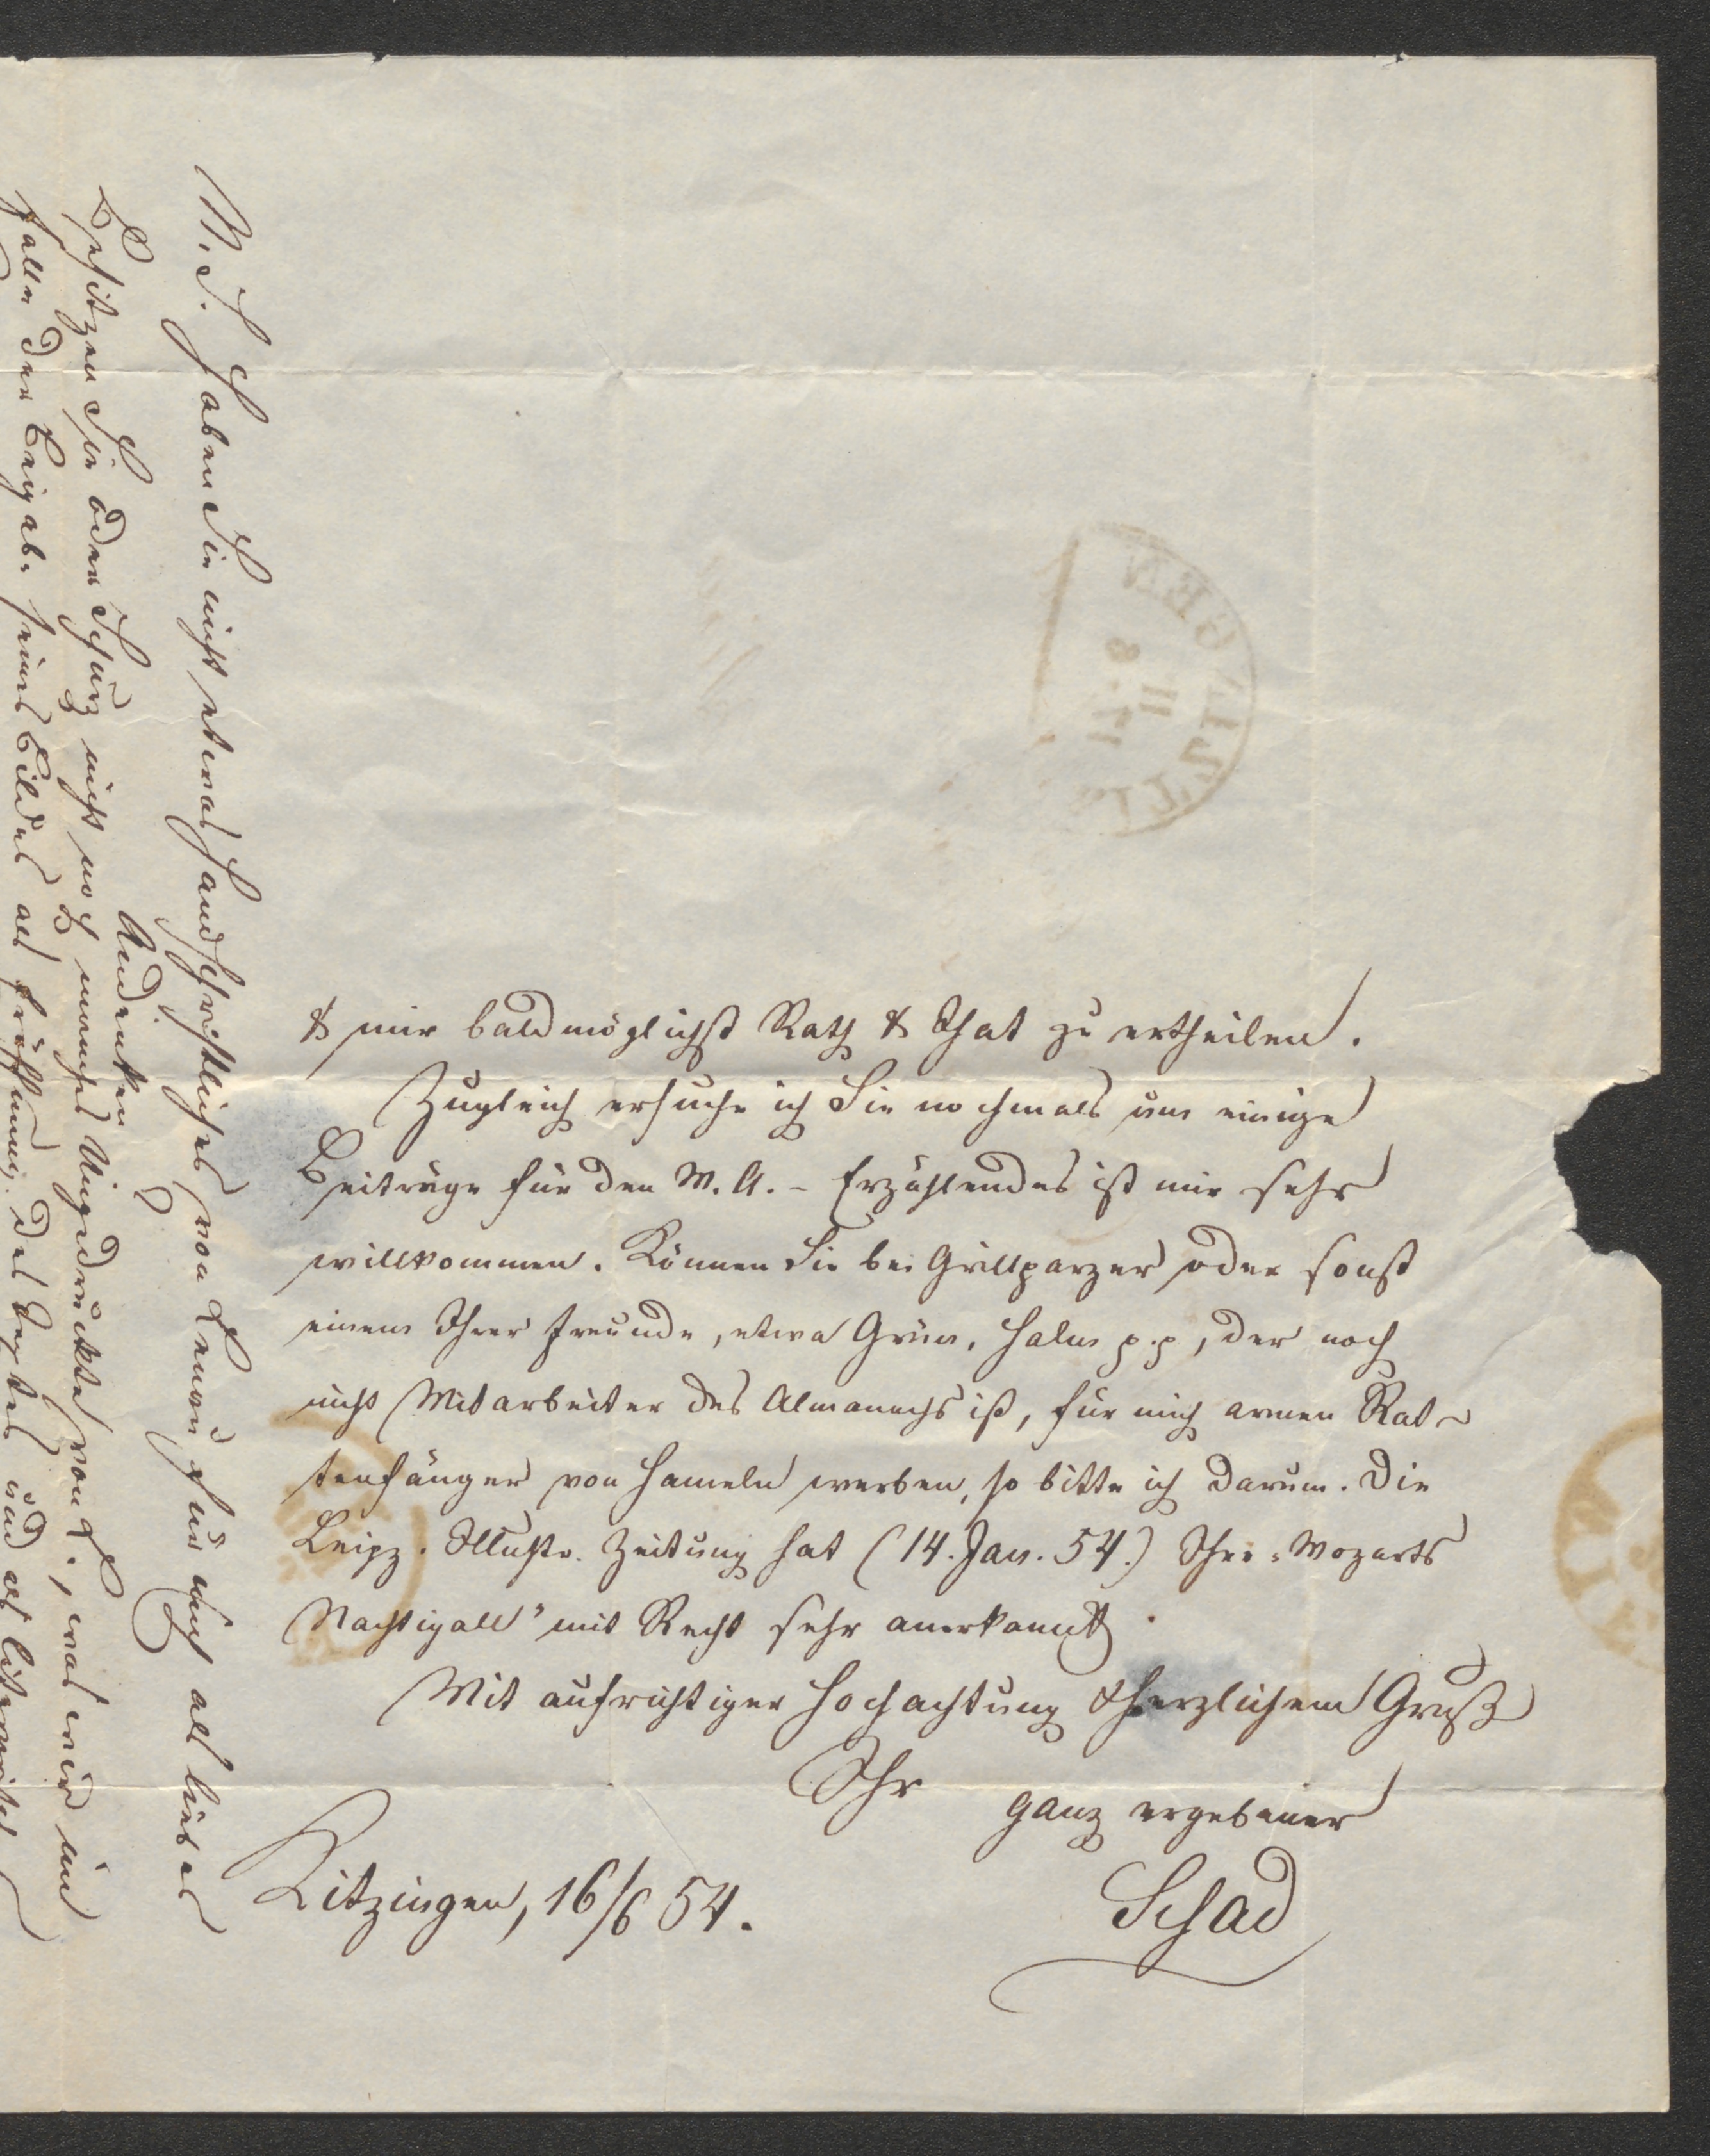 & mir baldmöglichst Rath & That zu ertheilen.
Zugleich ersuche ich Sie nochmals um einige
Beiträge für den M. A. – Erzählendes ist mir sehr
willkommen. Können Sie bei Grillparzer oder sonst
einem Ihrer Freunde, etwa Grün, Halm p.p, der noch
nicht Mitarbeiter des Almanachs ist, für mich armen Rat-
tenfänger von Hameln werben, so bitte ich darum. Die
Leipz. Illustr. Zeitung hat (14. Jan. 54.) Ihre „Mozarts
Nachtigall" mit Recht sehr anerkannt.
Mit aufrichtiger Hochachtung & herzlichem Gruß
Ihr
ganz ergebener
Schad
Kitzingen, 16/6 54.
N. S. Haben Sie nicht etwas Handschriftliches von Lenau für mich als liebes
Andenken
Besitzen Sie oder Schurz nicht noch manches Ungedrucktes von L., was mir im
Falle der Beigabe seines Bildes als
KITZINGEN